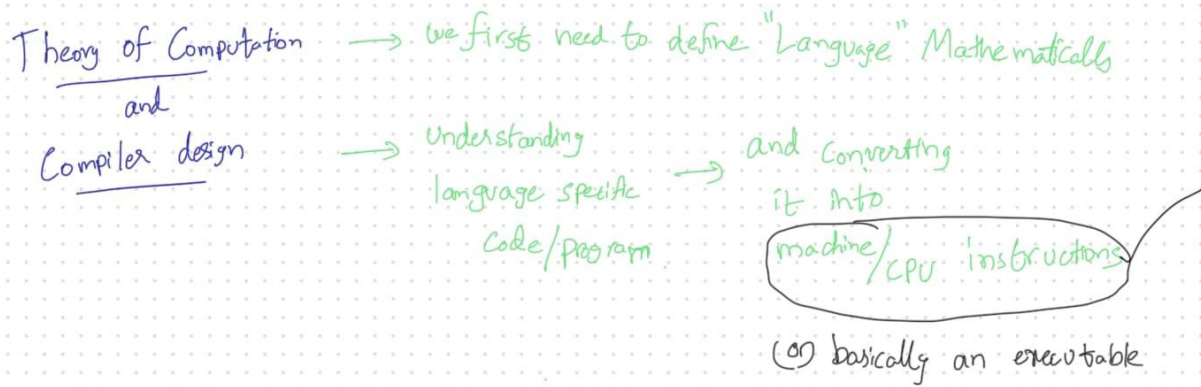 Theory of Computation → we first need to define "Language" Mathematically
and
Compiler design → understanding
language specific
code/program.
→ and converting
it into
machine/CPU instructions
(or) basically an executable